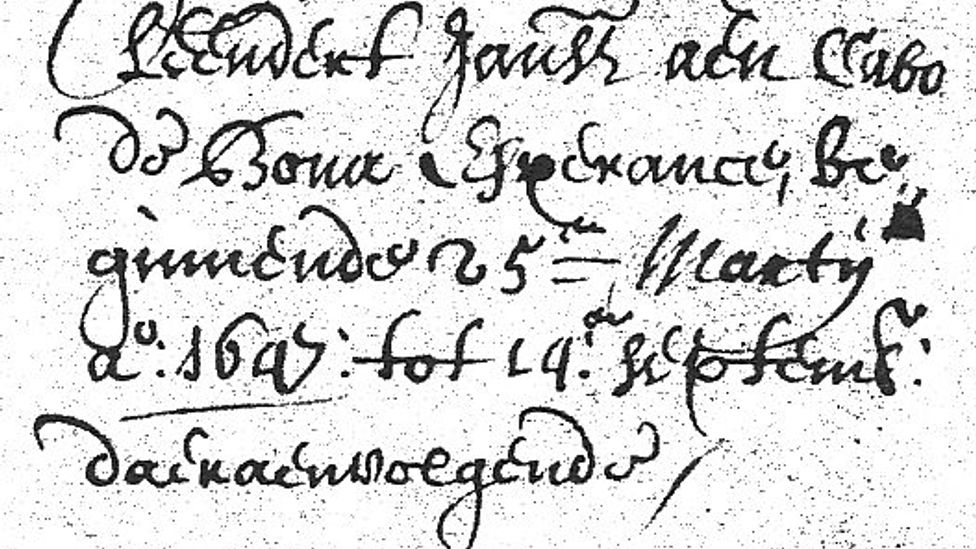 Leendert Jansz aen Cabo
de Bona Esperance, be
ginnende 25en Martij
ao: 1647: tot 14en septemb:
daeraenvolgende /